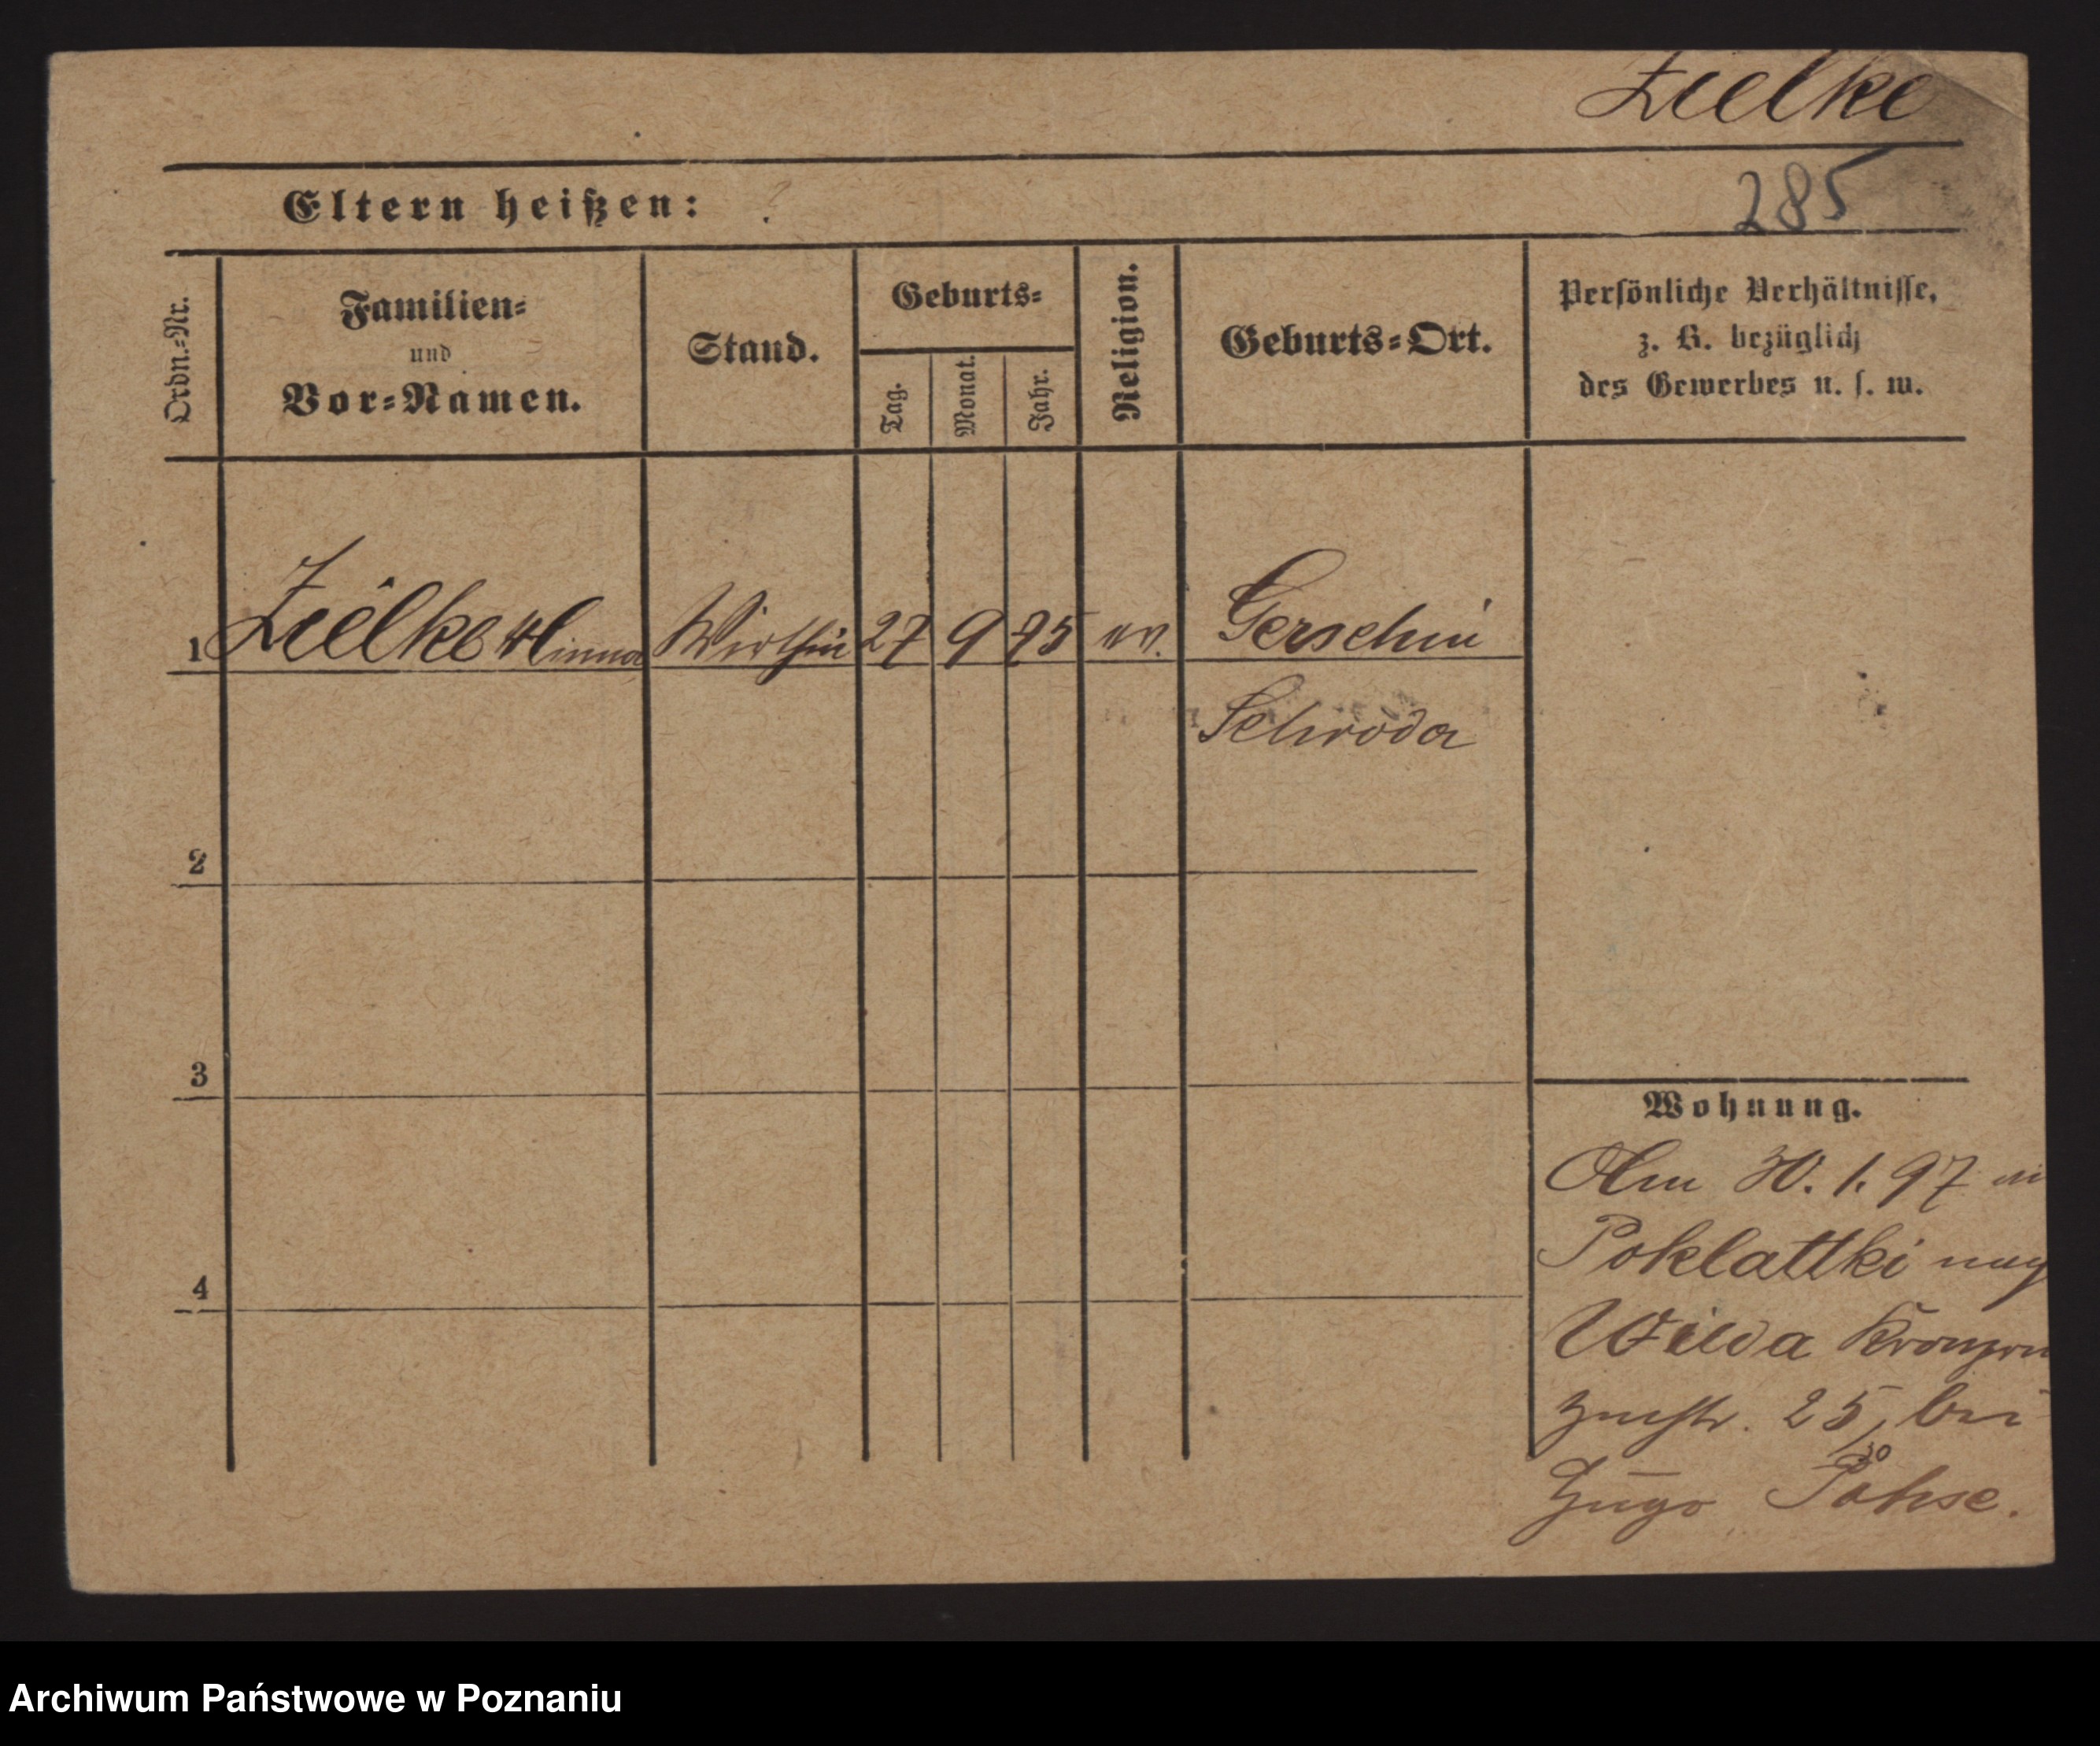 Zielke
285
Eltern heißen: ?
Ordn.-Nr.
Familien-
und
Vor-Namen.
Stand.
Geburts-
Tag.
Monat.
Jahr.
Religion.
Geburts-Ort.
Persönliche Verhältnisse,
z. B. bezüglich
des Gewerbes u. s. w.
1 Zielke Minna Wirthin 27 9 75 ev. Gerschin
Schroda
2
3
4
Wohnung.
Am 30. 1. 97 in
Poklattki nach
Wilda Kronprin
zenstr. 25, bei
30
Hugo Pohse.
Archiwum Państwowe w Poznaniu